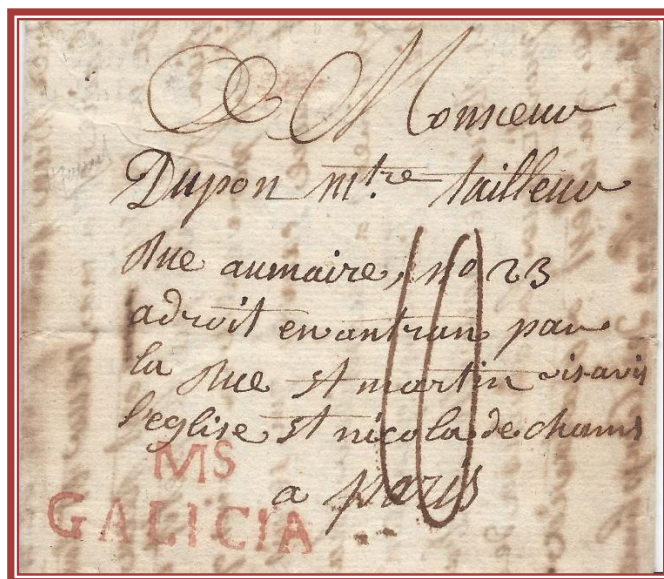 A Monsieur
Dupon m.tre tailleur
Rue aumaire, no 23
adroit en antran par
la Rue st martin visavis
l'eglise st nicola de chams
a paris
MS
GALICIA